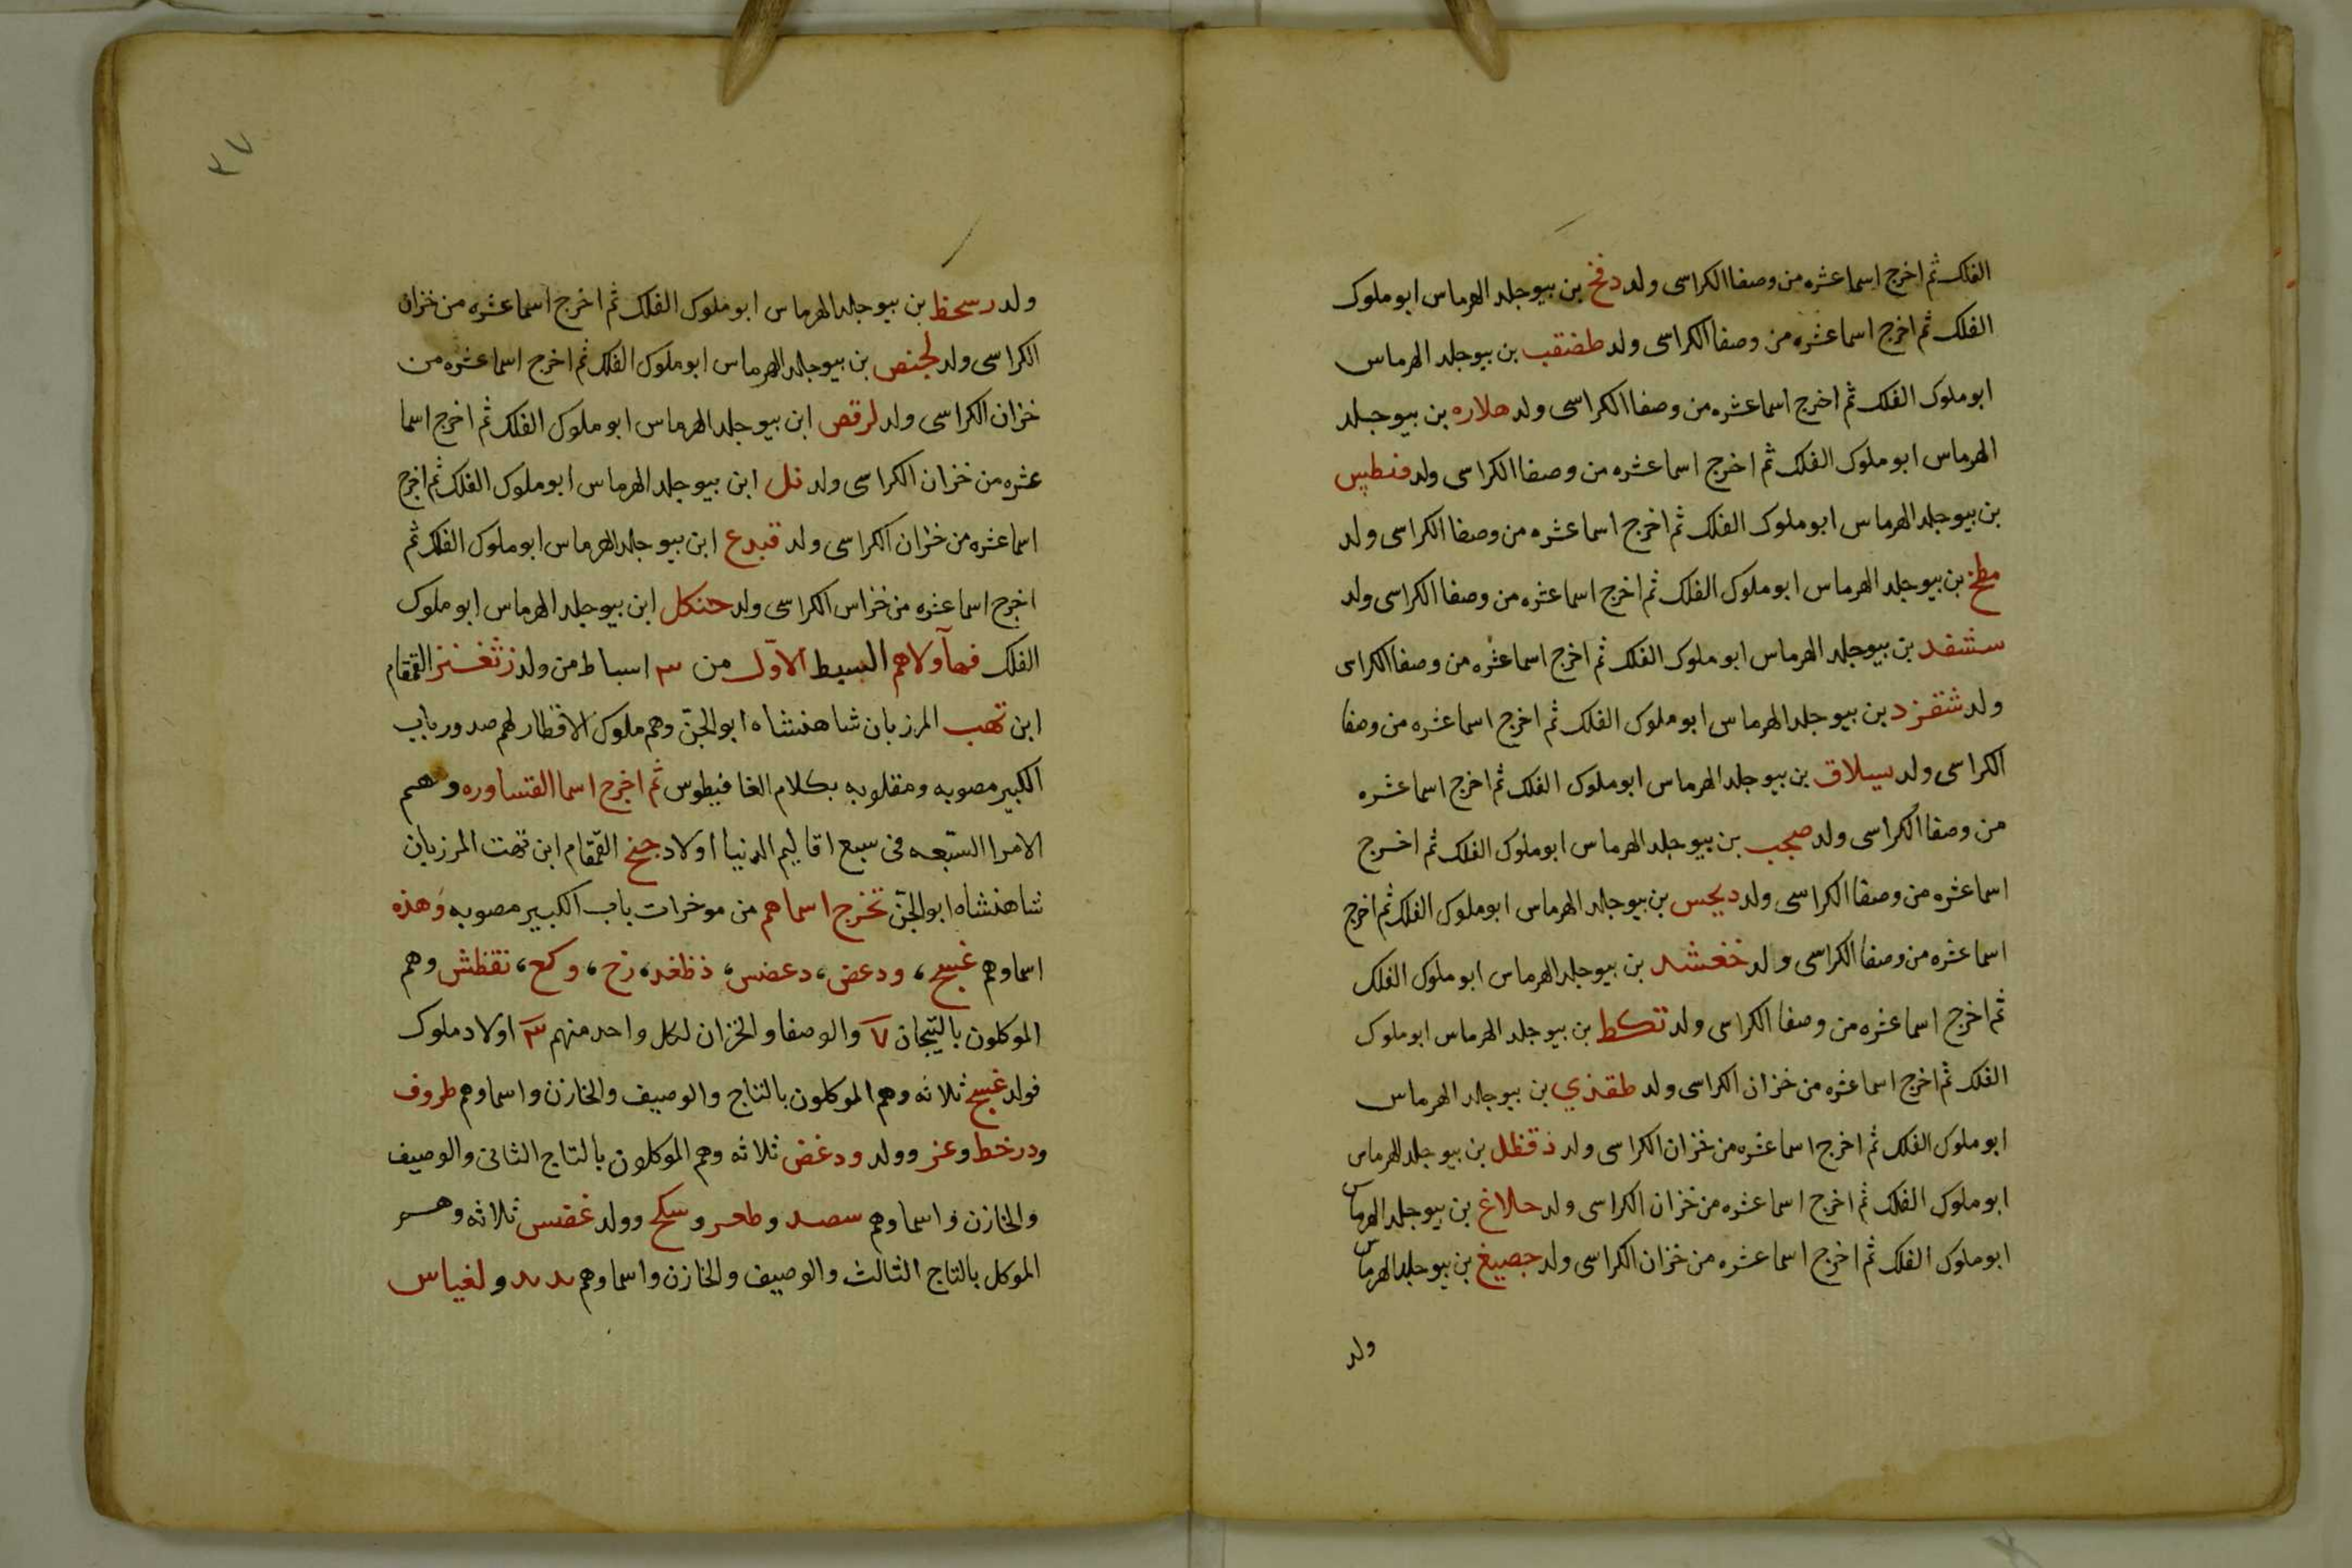 الفلك ثم اخرج اسما عشره من وصفا الكراسى ولد دفخ بن بيوجلد الهرماس ابو ملوك
الفلك ثم اخرج اسما عشره من وصفا الكراسى ولد طضقب بن بيوجلد الهرماس
ابو ملوك الفلك ثم اخرج اسما عشره من وصفا الكراسى ولد هلاره بن بيوجلد
الهرماس ابو ملوك الفلك ثم اخرج اسما عشره من وصفا الكراسى ولد
بن بيوجلد الهرماس ابو ملوك الفلك ثم اخرج اسما عشره من وصفا الكراسى ولد
مطخ بن بيوجلد الهرماس ابو ملوك الفلك ثم اخرج اسما عشره من وصفا الكراسى ولد
ستشفد بن بيوجلد الهرماس ابو ملوك الفلك ثم اخرج اسما عشره من وصفا الكراسى
ولد شقزد بن بيوجلد الهرماس ابو ملوك الفلك ثم اخرج اسما عشره من وصفا
الكراسى ولد سيلاق بن بيوجلد الهرماس ابو ملوك الفلك ثم اخرج اسما عشره
من وصفا الكراسى ولد صجب بن بيوجلد الهرماس ابو ملوك الفلك ثم اخرج
اسما عشره من وصفا الكراسى ولد ديجس بن بيوجلد الهرماس ابو ملوك الفلك ثم اخرج
اسما عشره من وصفا الكراسى ولد خغشد بن بيوجلد الهرماس ابو ملوك الفلك
ثم اخرج اسما عشره من وصفا الكراسى ولد تكط بن بيوجلد الهرماس ابو ملوك
الفلك ثم اخرج اسما عشره من خزان الكراسى ولد طقذي بن بيوجلد الهرماس
ابو ملوك الفلك ثم اخرج اسما عشره من خزان الكراسى ولد ذقظل بن بيوجلد الهرماس
ابو ملوك الفلك ثم اخرج اسما عشره من خزان الكراسى ولد حلاغ بن بيوجلد الهرماس
ابو ملوك الفلك ثم اخرج اسما عشره من خزان الكراسى ولد جصيغ بن بيوجلد الهرماس
ولد
٣٧
ولد رسحظ بن بيوجلد الهرماس ابو ملوك الفلك ثم اخرج اسما عشره من خزان
الكراسى ولد لجنص بن بيوجلد الهرماس ابو ملوك الفلك ثم اخرج اسما عشره من
خزان الكراسى ولد لرقص ابن بيوجلد الهرماس ابو ملوك الفلك ثم اخرج اسما
عشره من خزان الكراسى ولد نل ابن بيوجلد الهرماس ابو ملوك الفلك ثم اخرج
اسما عشره من خزان الكراسى ولد قبدع ابن بيوجلد الهرماس ابو ملوك الفلك ثم
اخرج اسما عشره من خزاس الكراسى ولد حنكل ابن بيوجلد الهرماس ابو ملوك
الفلك فمآ ولاهم السبط الاوّل من ٣ اسباط من ولد زثغنز القمقام
ابن تهب المرزبان شاهنشاه ابو الجنّ وهم ملوك الاقطار لهم صدور باب
الكبير مصوبه ومقلوبه بكلام الغافيطوس ثم اخرج اسما القساوره وهم
الامرا السّبعه فى سبع اقاليم الدنيا اولاد جنخ القمّقام ابن تهت المرزبان
شاهنشاه ابو الجنّ تخرج اسماهم من موخرات باب الكبير مصوبه وهذه
اسماوهم غبسج، ودعض، دعضس، ذظغد، زخ، وكع، نقظش وهم
الموكلون بالتّيجان ٧ والوصفا والخزان لكل واحد منهم ٣ اولاد ملوك
فولد غبسج ثلاثه وهم الموكلون بالتاج والوصيف والخازن واسماوهم طروف
ودرخط وعز وولد ودغض ثلاثه وهم الموكلون بالتاج الثانى والوصيف
والخازن واسماوهم سصد وطحر وسكح وولد غفس ثلاثه وهم
الموكل بالتاج الثالث والوصيف والخازن واسماوهم ولغياس